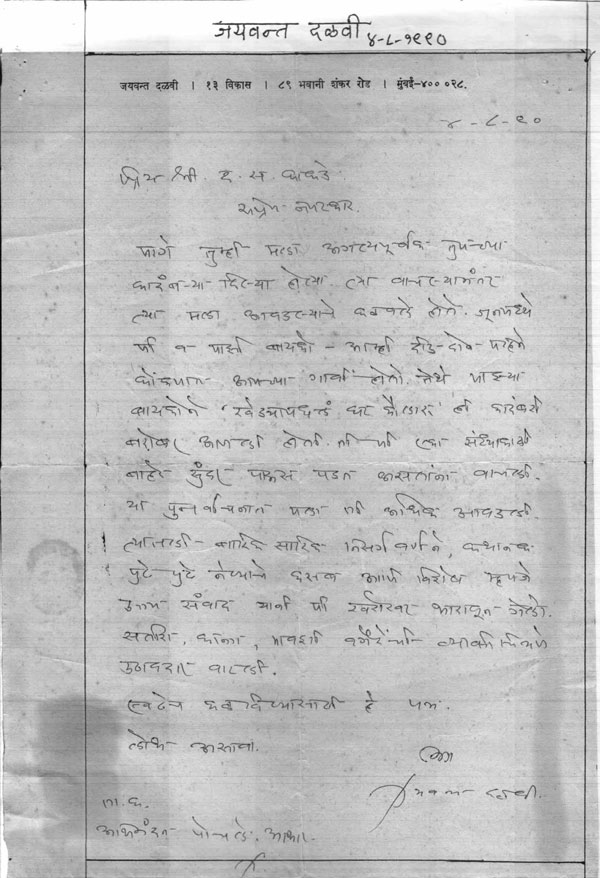 जयवन्त दळवी ४-८-१९९०
जयवन्त दळवी | १३ विकास | ८९ भवानी शंकर रोड | मुंबई-४०० ०२८.
४-८-९०
प्रिय श्री. ह. स.
सप्रेम नमस्कार.
मागे तुम्ही मला अगत्यपूर्वक तुमच्या
कादंबऱ्या दिल्या होत्या. त्या वाचल्यानंतर
त्या मला आवडल्याचे कळवले होते. जूनमध्ये
मी व माझी बायको - आम्ही दीड-दोन महिने
कोकणात आमच्या गावी होतो. तेथे माझ्या
बायकोने ही कादंबरी
बरोबर आणली होती. ती मी एका संध्याकाळी
बाहेर धुंद पाऊस पडत असतांना वाचली.
या पुनर्वाचनात मला ती अधिक आवडली.
त्यातली बारिक सारिक निसर्ग वर्णने, कथानक
पुढे पुढे नेण्याचे कसब आणि विशेष म्हणजे
उत्तम संवाद यांनी मी खरोखर भारावून गेलो.
वगैरेंची व्यक्तिचित्रणे
उठावदार वाटली.
एवढेच कळविण्यासाठी हे पत्र.
लोभ असावा.
आपला
जयवन्त दळवी.
ता. क.
अभिनंदन पोचले. आभार.